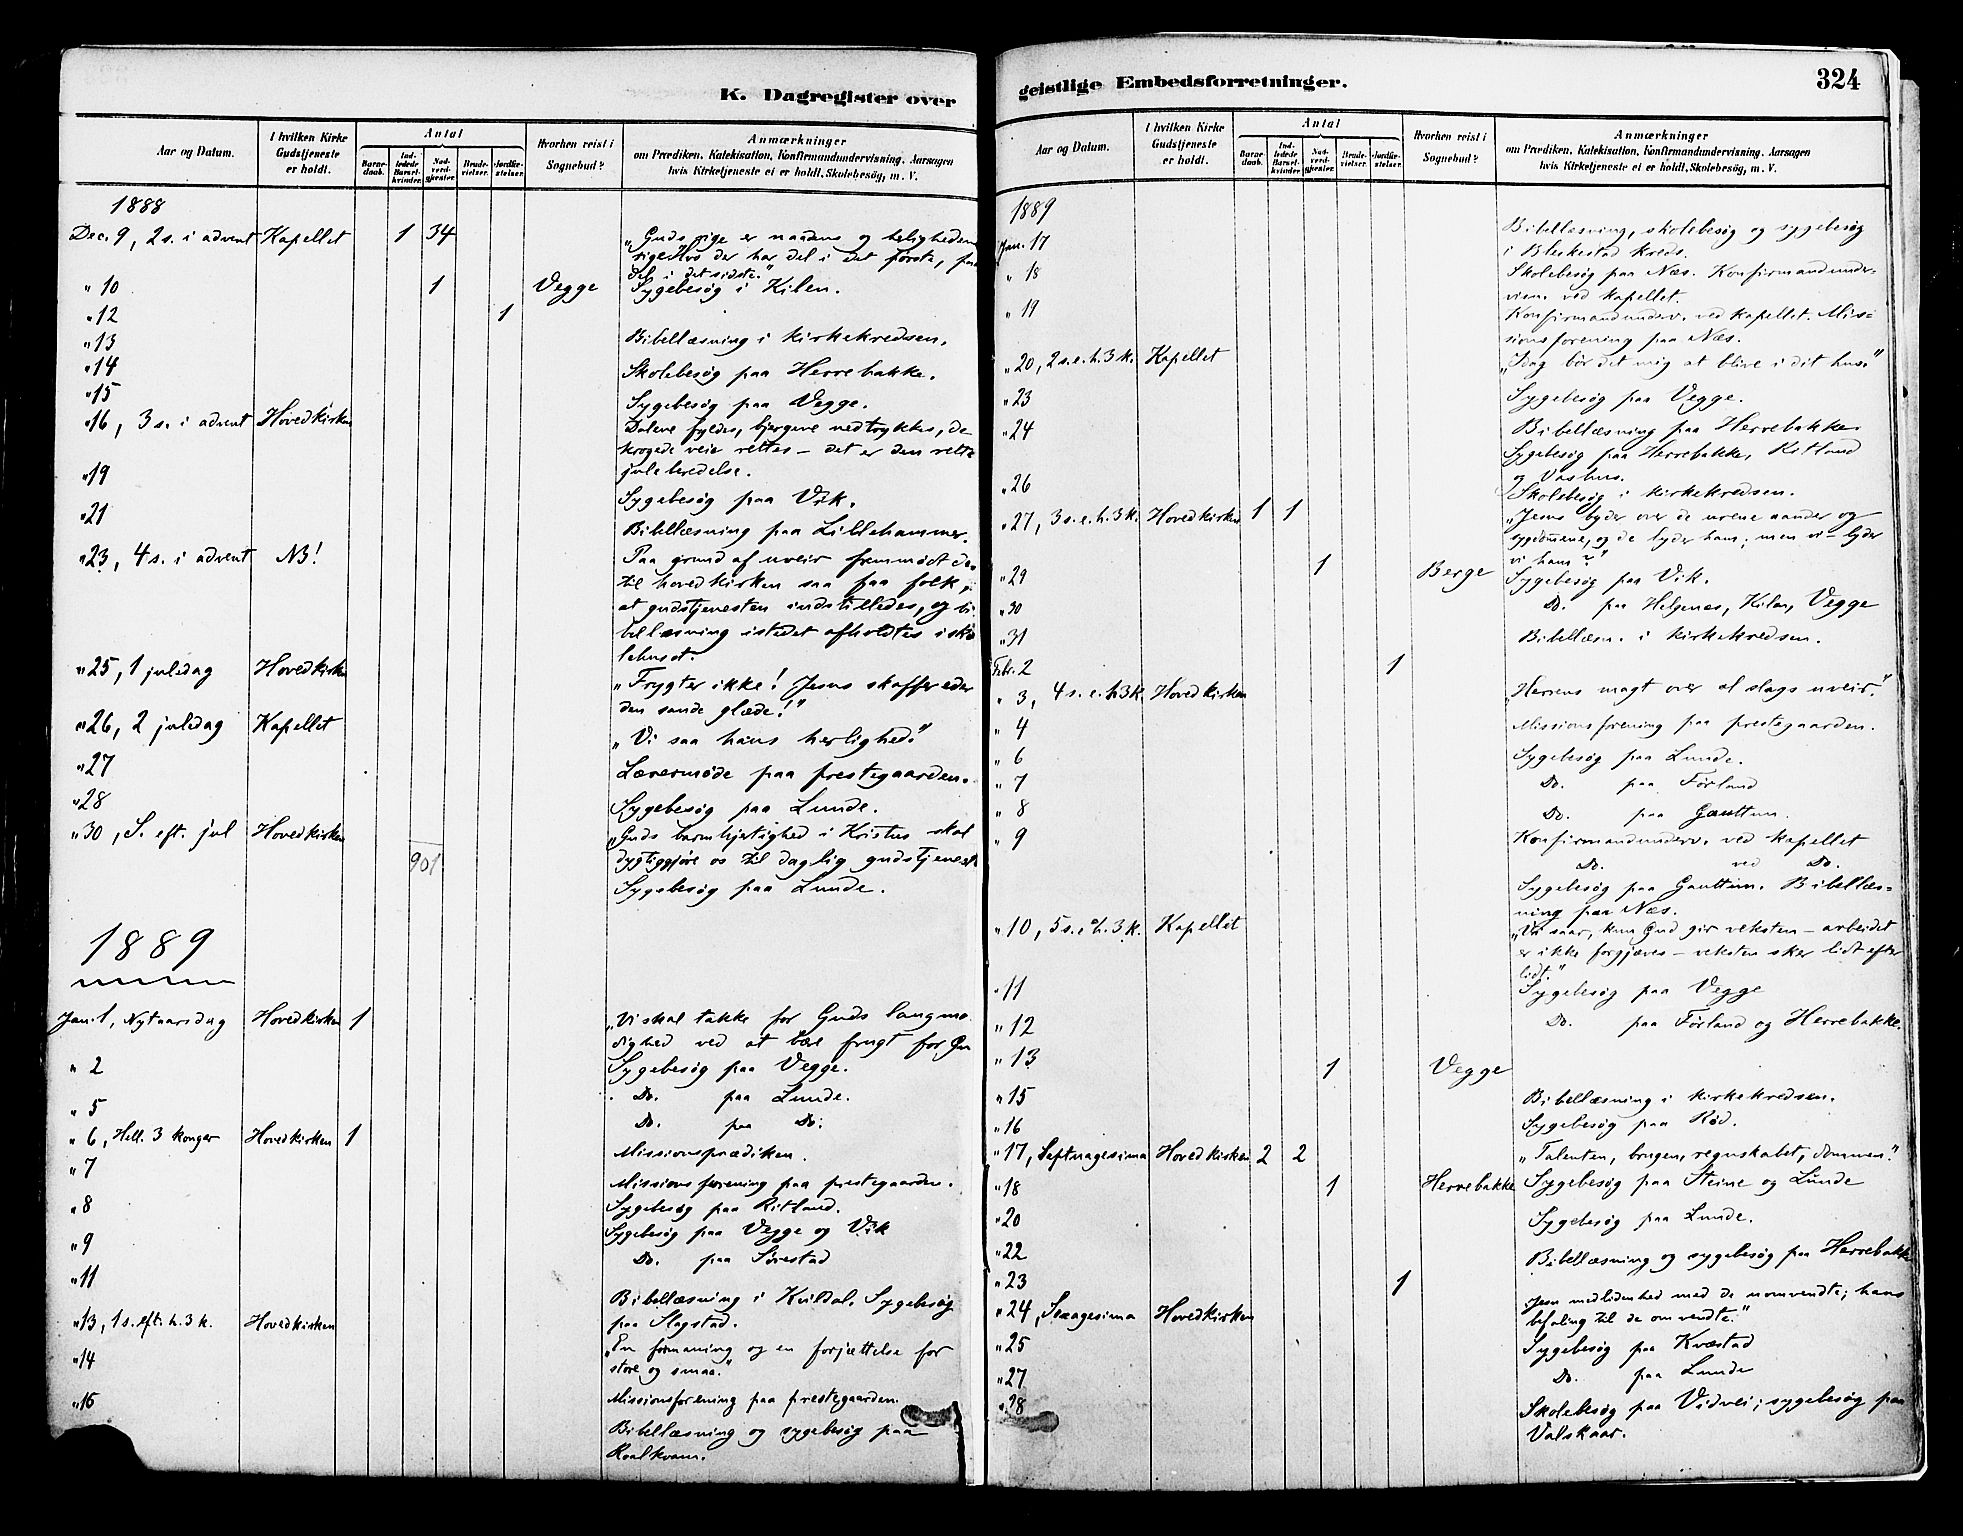 K. Dagregister over
Aar og Datum.
I hvilken Kirke Gudstjeneste er holdt.
Antal
Barne-daab.
Ind-ledede Barsel-kvinder.
Nad-verd-gjester.
Brude-vielser.
Jordfæ-stelser.
Hvorhen reist i Sognebud?
Anmærkninger
om Prædiken, Katekisation, Konfirmandundervisning, Aarsagen
hvis Kirketjeneste ei er holdt, Skolebesøg, m. V.
1888
Dec. 9, 2 s. i advent Kapellet 1 34 „Guds rige er naadens og helighedens
rige. Hvo der har del i det første, faar
del i det sidste."
" 10 1 Vegge Sygebesøg i Kilen.
" 12 1
" 13 Bibellæsning i kirkekredsen.
" 14 Skolebesøg paa Herrebakke.
" 15 Sygebesøg paa Vegge.
" 16, 3 s. i advent Hovedkirken Dalene fyldes, bjergene nedtrykkes, de
krogede veie rettes – det er den rette
juleberedelse.
" 19 Sygebesøg paa Vik.
" 21 Bibellæsning paa Lillehammer.
" 23, 4 s. i advent NB! Paa grund af uveir fremmødt der
til hovedkirken saa faa folk,
at gudstjenesten indstilledes, og bi
bellæsning istedet afholdtes i sko
lehuset.
" 25, 1 juledag Hovedkirken „Frygter ikke! Jesus skaffer eder
den sande glæde!"
" 26, 2 juledag Kapellet „Vi saa hans herlighed."
" 27 Lærermøde paa prestegaarden.
" 28 Sygebesøg paa Lunde.
" 30, S. eft. jul Hovedkirken „Guds barmhjertighed i Kristus skal
901 dygtiggjøre os til daglig gudstjeneste
Sygebesøg paa Lunde.
1889
Jan. 1, Nytaarsdag Hovedkirken 1 „Vi skal takke for Guds langmo
dighed ved at bære frugt for
" 2 Sygebesøg paa Vegge.
" 5 Do. paa Lunde.
Do. paa Do.
" 6, Hell. 3 konger Hovedkirken 1 Missionsprædiken.
" 7 Missionsforening paa prestegaarden.
" 8 Sygebesøg paa Ritland.
" 9 Sygebesøg paa Vegge og Vik
Do. paa Sørestad
" 11 Bibellæsning i Kvildal. Sygebesøg
paa Slagstad.
" 13, 1 s. eft. h. 3 k. Hovedkirken „En formaning og en forjættelse for
store og smaa."
" 14 Missionsforening paa prestegaarden
" 16 Bibellæsning og sygebesøg paa
Roalkvam.
geistlige Embedsforretninger.
324
Aar og Datum.
I hvilken Kirke Gudstjeneste er holdt.
Antal
Barne-daab.
Ind-ledede Barsel-kvinder.
Nad-verd-gjester.
Brude-vielser.
Jordfæ-stelser.
Hvorhen reist i Sognebud?
Anmærkninger
om Prædiken, Katekisation, Konfirmandundervisning, Aarsagen
hvis Kirketjeneste ei er holdt, Skolebesøg, m. V.
1889
Jan. 17 Bibellæsning, skolebesøg og sygebesøg
i Bleskestad kreds.
" 18 Skolebesøg paa Næs. Konfirmandunder-
visn. ved kapellet.
" 19 Konfirmandunderv. ved kapellet. Mis-
sionsforening paa Næs.
" 20, 2 s. e. h. 3 k. Kapellet „Idag bør det mig at blive i dit hus."
" 23 Sygebesøg paa Vegge.
" 24 Bibellæsning paa Herrebakke.
Sygebesøg paa Herrebakke, Ritland
og Vashus.
" 26 Skolebesøg i kirkekredsen.
" 27, 3 s. e. h. 3 k. Hovedkirken 1 1 „Jesus byder over de urene aander og
sygdommene, og de lyder ham; men vi – lyder
vi ham?"
" 29 1 Berge Sygebesøg paa Vik.
" 30 Do. paa Helgenes, Kilen, Vegge
" 31 Bibellæsn. i kirkekredsen.
Febr. 2 1
" 3, 4 s. e. h. 3 k. Hovedkirken „Herrens magt over al slags uveir."
" 4 Missionsforening paa prestegaarden.
" 6 Sygebesøg paa Lunde.
" 7 Do. paa Førland
" 8 Do. paa Gauttun.
" 9 Konfirmandunderv. ved kapellet
Do. ved Do.
Sygebesøg paa Gauttun. Bibellæs-
ning paa Næs.
" 10, 5 s. e. h. 3 k. Kapellet „Vi saar, kun Gud gir veksten – arbeidet
er ikke forgjæves – veksten sker lidt efter
lidt."
" 11 Sygebesøg paa Vegge
" 12 Do. paa Førland og Herrebakke.
" 13 1 Vegge
" 15 Bibellæsning i kirkekredsen.
" 16 Sygebesøg paa Rød.
" 17, Septuagesima Hovedkirken 2 2 „Talenten, brugen, regnskabet, dommen."
" 18 1 Herrebakke Sygebesøg paa Steine og Lunde
" 20 Sygebesøg paa Lunde.
" 22 Bibellæsning og sygebesøg paa Herrebakke
" 23 1
" 24, Sexagesima Hovedkirken Jesu medlidenhed med de uomvendte; hans
befaling til de omvendte."
" 25 Sygebesøg paa Kvæstad
" 27 Do. paa Lunde
" 28 Skolebesøg paa Vidvei; sygebesøg paa
Valskaar.